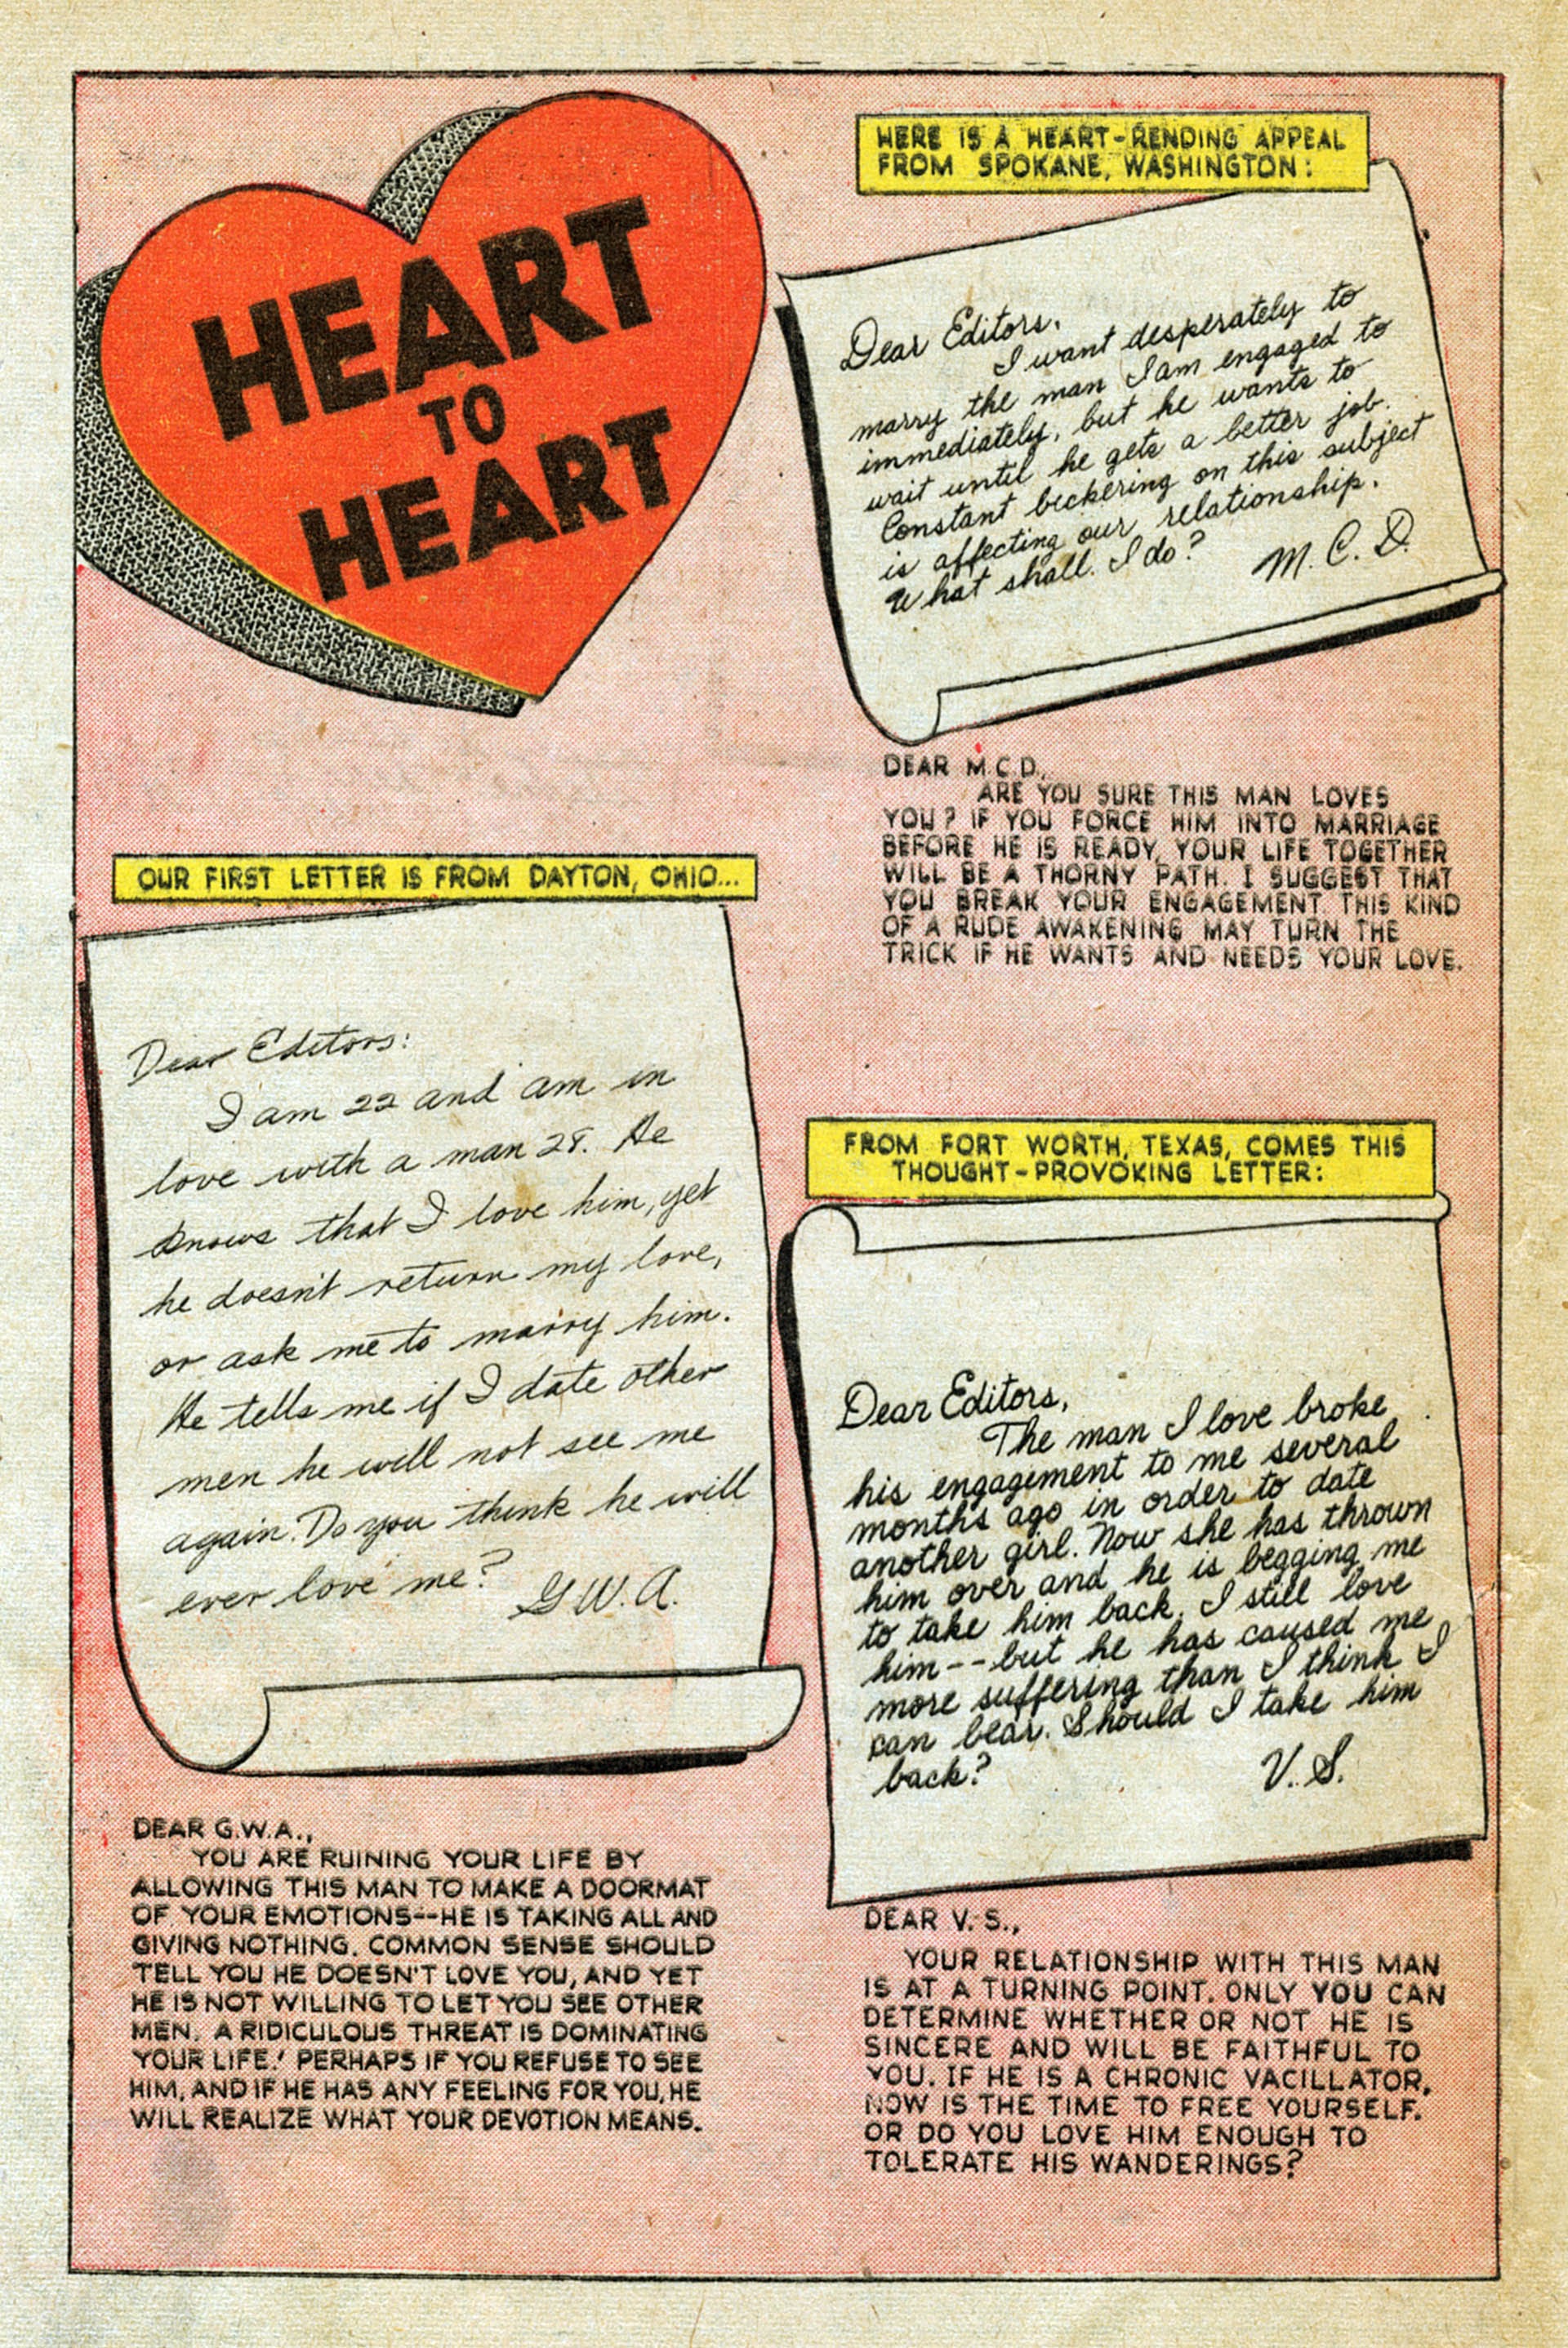 HEART
TO
HEART
OUR FIRST LETTER IS FROM DAYTON, OHIO...
Dear Editors:
I am 22 and am in
love with a man 28. He
knows that I love him, yet
he doesn't return my love,
or ask me to marry him.
He tells me if I date other
men he will not see me
again. Do you think he will
ever love me?
G.W.A.
DEAR G.W.A.,
YOU ARE RUINING YOUR LIFE BY
ALLOWING THIS MAN TO MAKE A DOORMAT
OF YOUR EMOTIONS--HE IS TAKING ALL AND
GIVING NOTHING. COMMON SENSE SHOULD
TELL YOU HE DOESN'T LOVE YOU, AND YET
HE IS NOT WILLING TO LET YOU SEE OTHER
MEN. A RIDICULOUS THREAT IS DOMINATING
YOUR LIFE! PERHAPS IF YOU REFUSE TO SEE
HIM, AND IF HE HAS ANY FEELING FOR YOU, HE
WILL REALIZE WHAT YOUR DEVOTION MEANS.
HERE IS A HEART-RENDING APPEAL
FROM SPOKANE, WASHINGTON:
Dear Editors,
I want desperately to
marry the man I am engaged to
immediately, but he wants to
wait until he gets a better job.
Constant bickering on this subject
is affecting our relationship.
What shall I do?
M. C. D.
DEAR M.C.D.,
ARE YOU SURE THIS MAN LOVES
YOU? IF YOU FORCE HIM INTO MARRIAGE
BEFORE HE IS READY, YOUR LIFE TOGETHER
WILL BE A THORNY PATH. I SUGGEST THAT
YOU BREAK YOUR ENGAGEMENT THIS KIND
OF A RUDE AWAKENING MAY TURN THE
TRICK IF HE WANTS AND NEEDS YOUR LOVE.
FROM FORT WORTH, TEXAS, COMES THIS
THOUGHT-PROVOKING LETTER:
Dear Editors,
The man I love broke
his engagement to me several
months ago in order to date
another girl. Now she has thrown
him over and he is begging me
to take him back. I still love
him--but he has caused me
more suffering than I think I
can bear. Should I take him
back?
V. S.
DEAR V. S.,
YOUR RELATIONSHIP WITH THIS MAN
IS AT A TURNING POINT. ONLY YOU CAN
DETERMINE WHETHER OR NOT HE IS
SINCERE AND WILL BE FAITHFUL TO
YOU. IF HE IS A CHRONIC VACILLATOR,
NOW IS THE TIME TO FREE YOURSELF.
OR DO YOU LOVE HIM ENOUGH TO
TOLERATE HIS WANDERINGS?